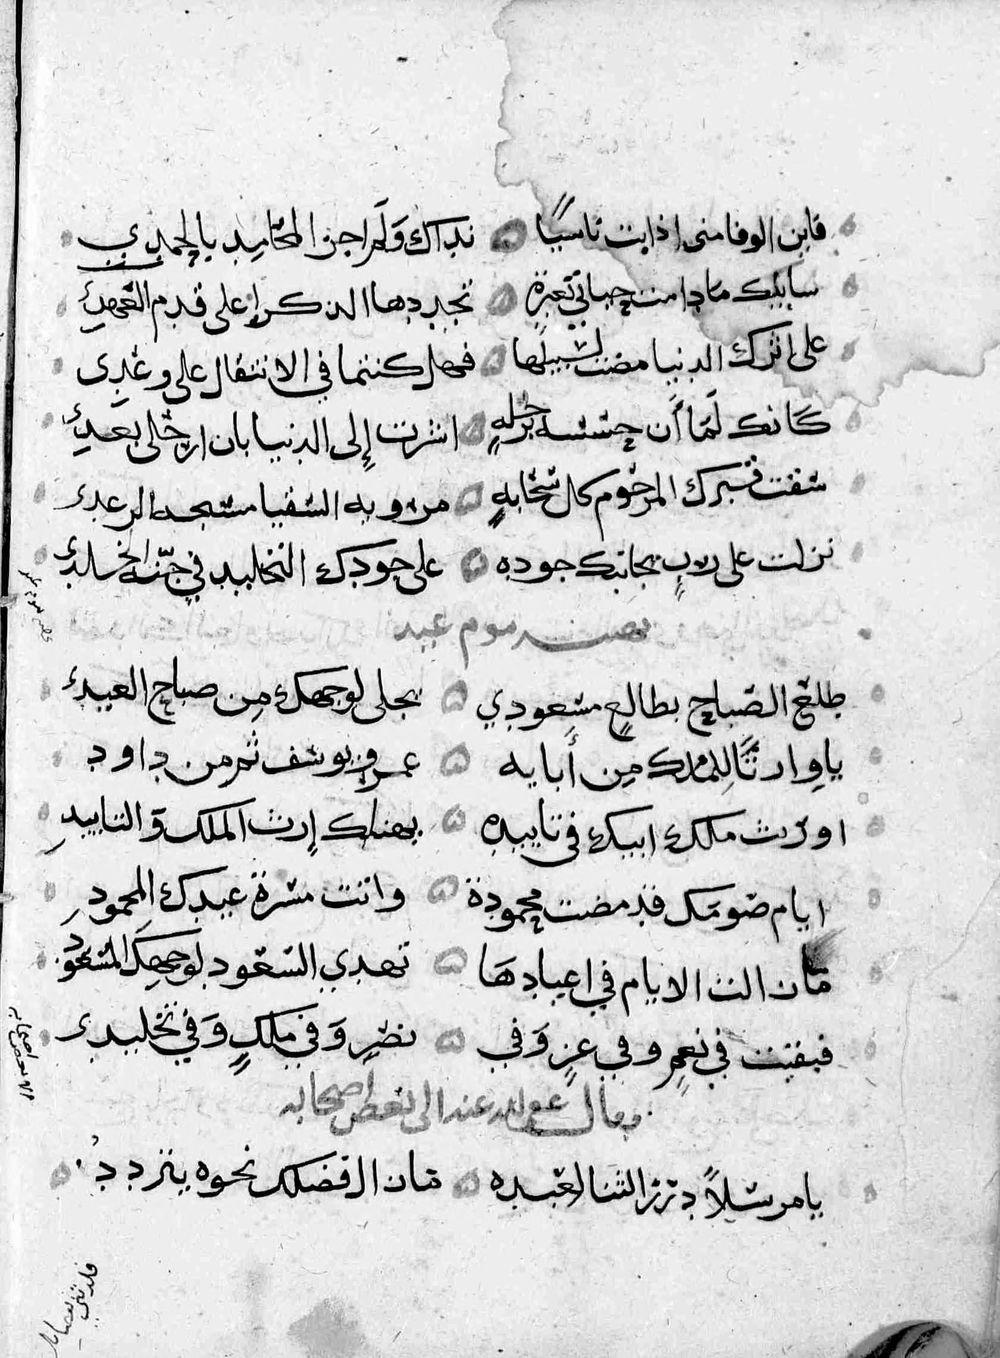 فاين الوفا مني اذا بت ناسيًا نداك وَلَم اجن المحَامِد بالحمدِي
سابيك مَادامت حياتي تعزة تجددها الذكرا على قدم العَهدِي
على اثرك الدنيا مضت لسَبيلها فهل كنتما في الانتقال على وعْدِي
كَانك لَمّا أن حثثته برحْلهِ اشرت إلى الدنيا بان ارحَلى بعْدِي
سَقت قبرك المرحُوم كل سَحَابهٍ مرويه السُقيا مسَجه الرعدِي
نزلت على ربٍ بجانبك جوده على جودك التخليد في جنّه الخلدِ
يوم عيد
طلعَ الصّباح بطالعٍ مسعودي يجلى لوجهك مِن صباح العيدِ
ياوارثًا للملك مِن أبايه عمرو يوسف ثم من داود
اورَث ملك ابيك في تاييده يهناك إرث الملك وَالتاييدِ
ايام صَومَك قد مضت محمودة واتت مسَرة عيدك المحمودِ
مازالت الايام في اعيادهَا تهدي السّعُود لوجهكَ المَسعُود
فبقيت في نعمٍ وفي عزٍ وَفي نصْرٍ وَفي مُلكٍ وَفي تخليدِ
وقال عفى الله عنه الى بعض اصحابه
يا مرسَلاً درَر الثنا لعَبده مازال فضلك نحوه يتردد